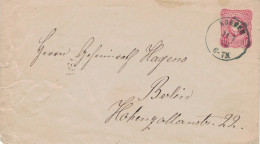 Herrn Geheimrath Hagens
Berlin
Hohenzollernstr. 22.